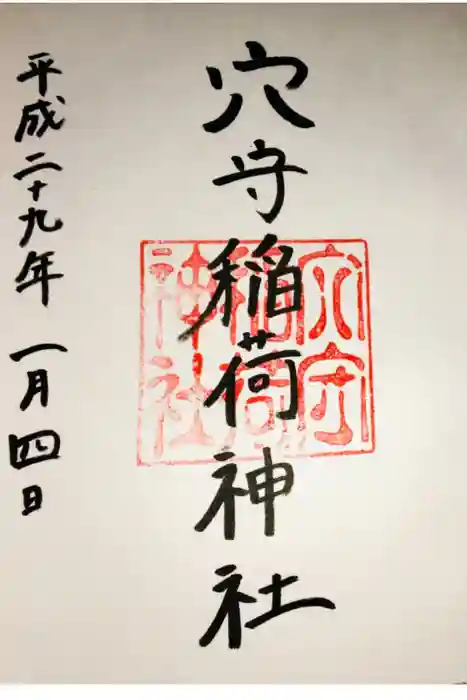 穴守稲荷神社
穴守
稲荷
神社
平成二十九年一月四日